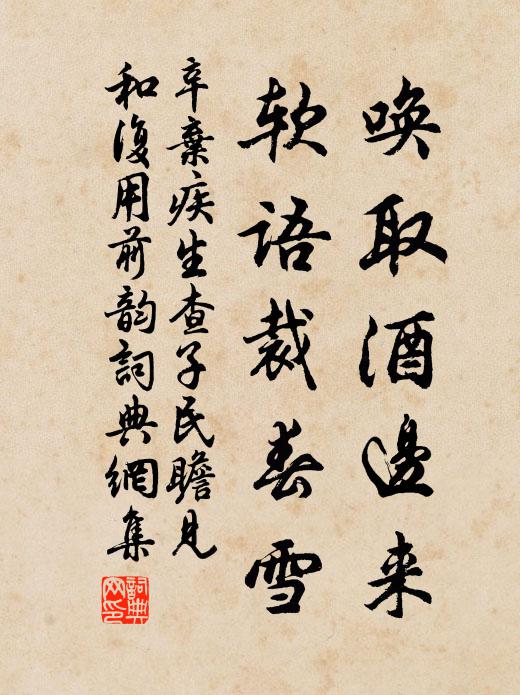 唤取酒邊来
软語裁春雪
辛棄疾生查子民瞻見
和復用前韵詞典網集
詞典網印